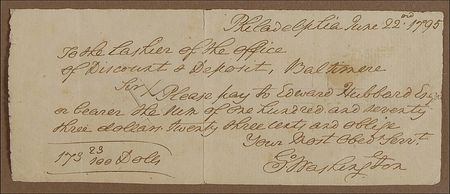 Philadelphia June 22nd 1795
To the Cashier of the office
of Discount & Deposit, Baltimore
Sir/ Please pay to Edward Hubbard Esqr
or bearer the sum of one hundred and seventy
three dollars twenty three cents and oblige
Your Most Obedt Servt.
173 23/100 Dolls
G Washington